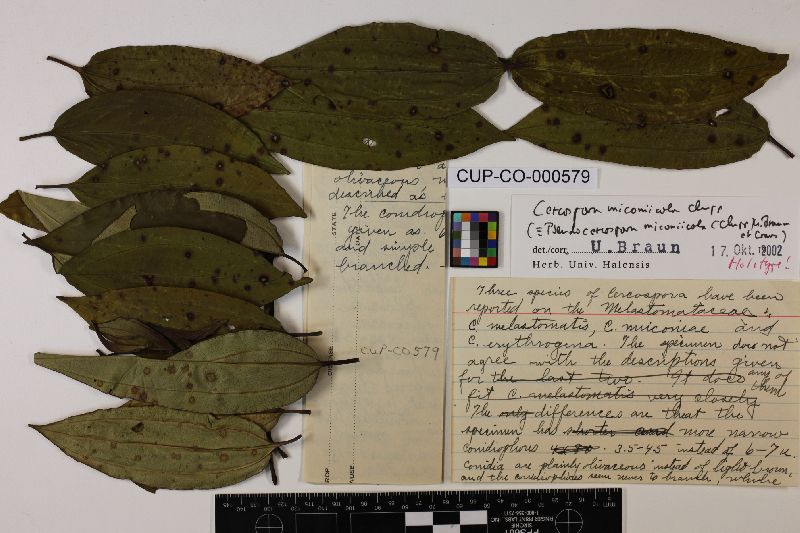 olivaceous
described as
The conidioph
given as
and simple
branched.
STATE
CUP-CO579
CUP-CO-000579
Cercospora miconiicola Chupp
(≡ Pseudocercospora miconiicola (Chupp) U. Braun
et Crous)
det./corr. U. Braun 17. Okt. 2002
Herb. Univ. Halensis Holotype!
Three species of Cercospora have been
reported on the Melastomataceae,
C. melastomatis, C. miconiae and
C. erythrogena. The specimen does not
agree with the descriptions given
for the last two. It does any of them
fit C. melastomatis very closely
The only differences are that the
specimen has shorter and more narrow
conidiophores 3.5-4.5 instead of 6-7 u.
Conidia are plainly olivaceous instead of light brown,
and the conidiophores seem never to branch, while